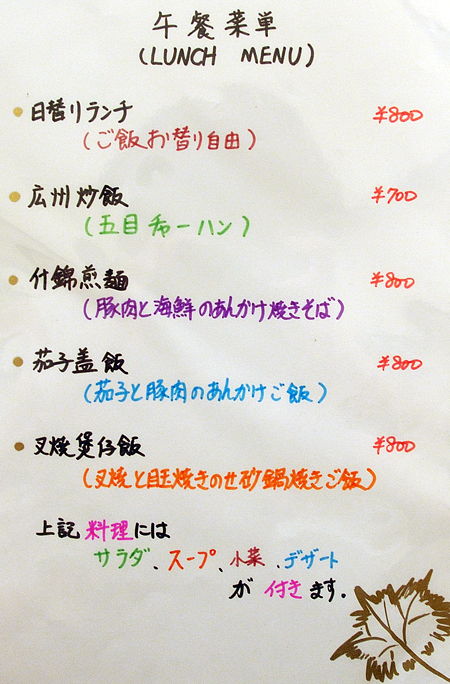 午餐菜単
(LUNCH MENU)
日替りランチ ¥800
(ご飯お替り自由)
広州炒飯 ¥700
(五目チャーハン)
什錦煎麺 ¥800
(豚肉と海鮮のあんかけ焼きそば)
茄子盖飯 ¥800
(茄子と豚肉のあんかけご飯)
叉焼煲仔飯 ¥800
(叉焼と目玉焼きのせ砂鍋焼きご飯)
上記料理には
サラダ、スープ、小菜、デザート
が付きます.